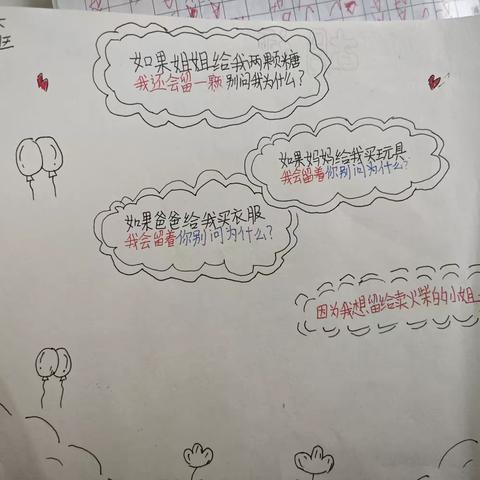 如果姐姐给我两颗糖
我还会留一颗 别问我为什么?
如果妈妈给我买玩具
我会留着你别问为什么?
如果爸爸给我买衣服
我会留着你别问为什么?
因为我想留给卖火柴的小姐